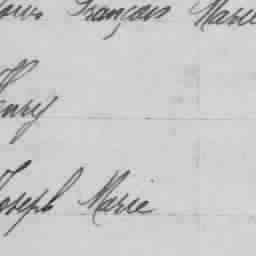 François Marie
Henry
Joseph Marie